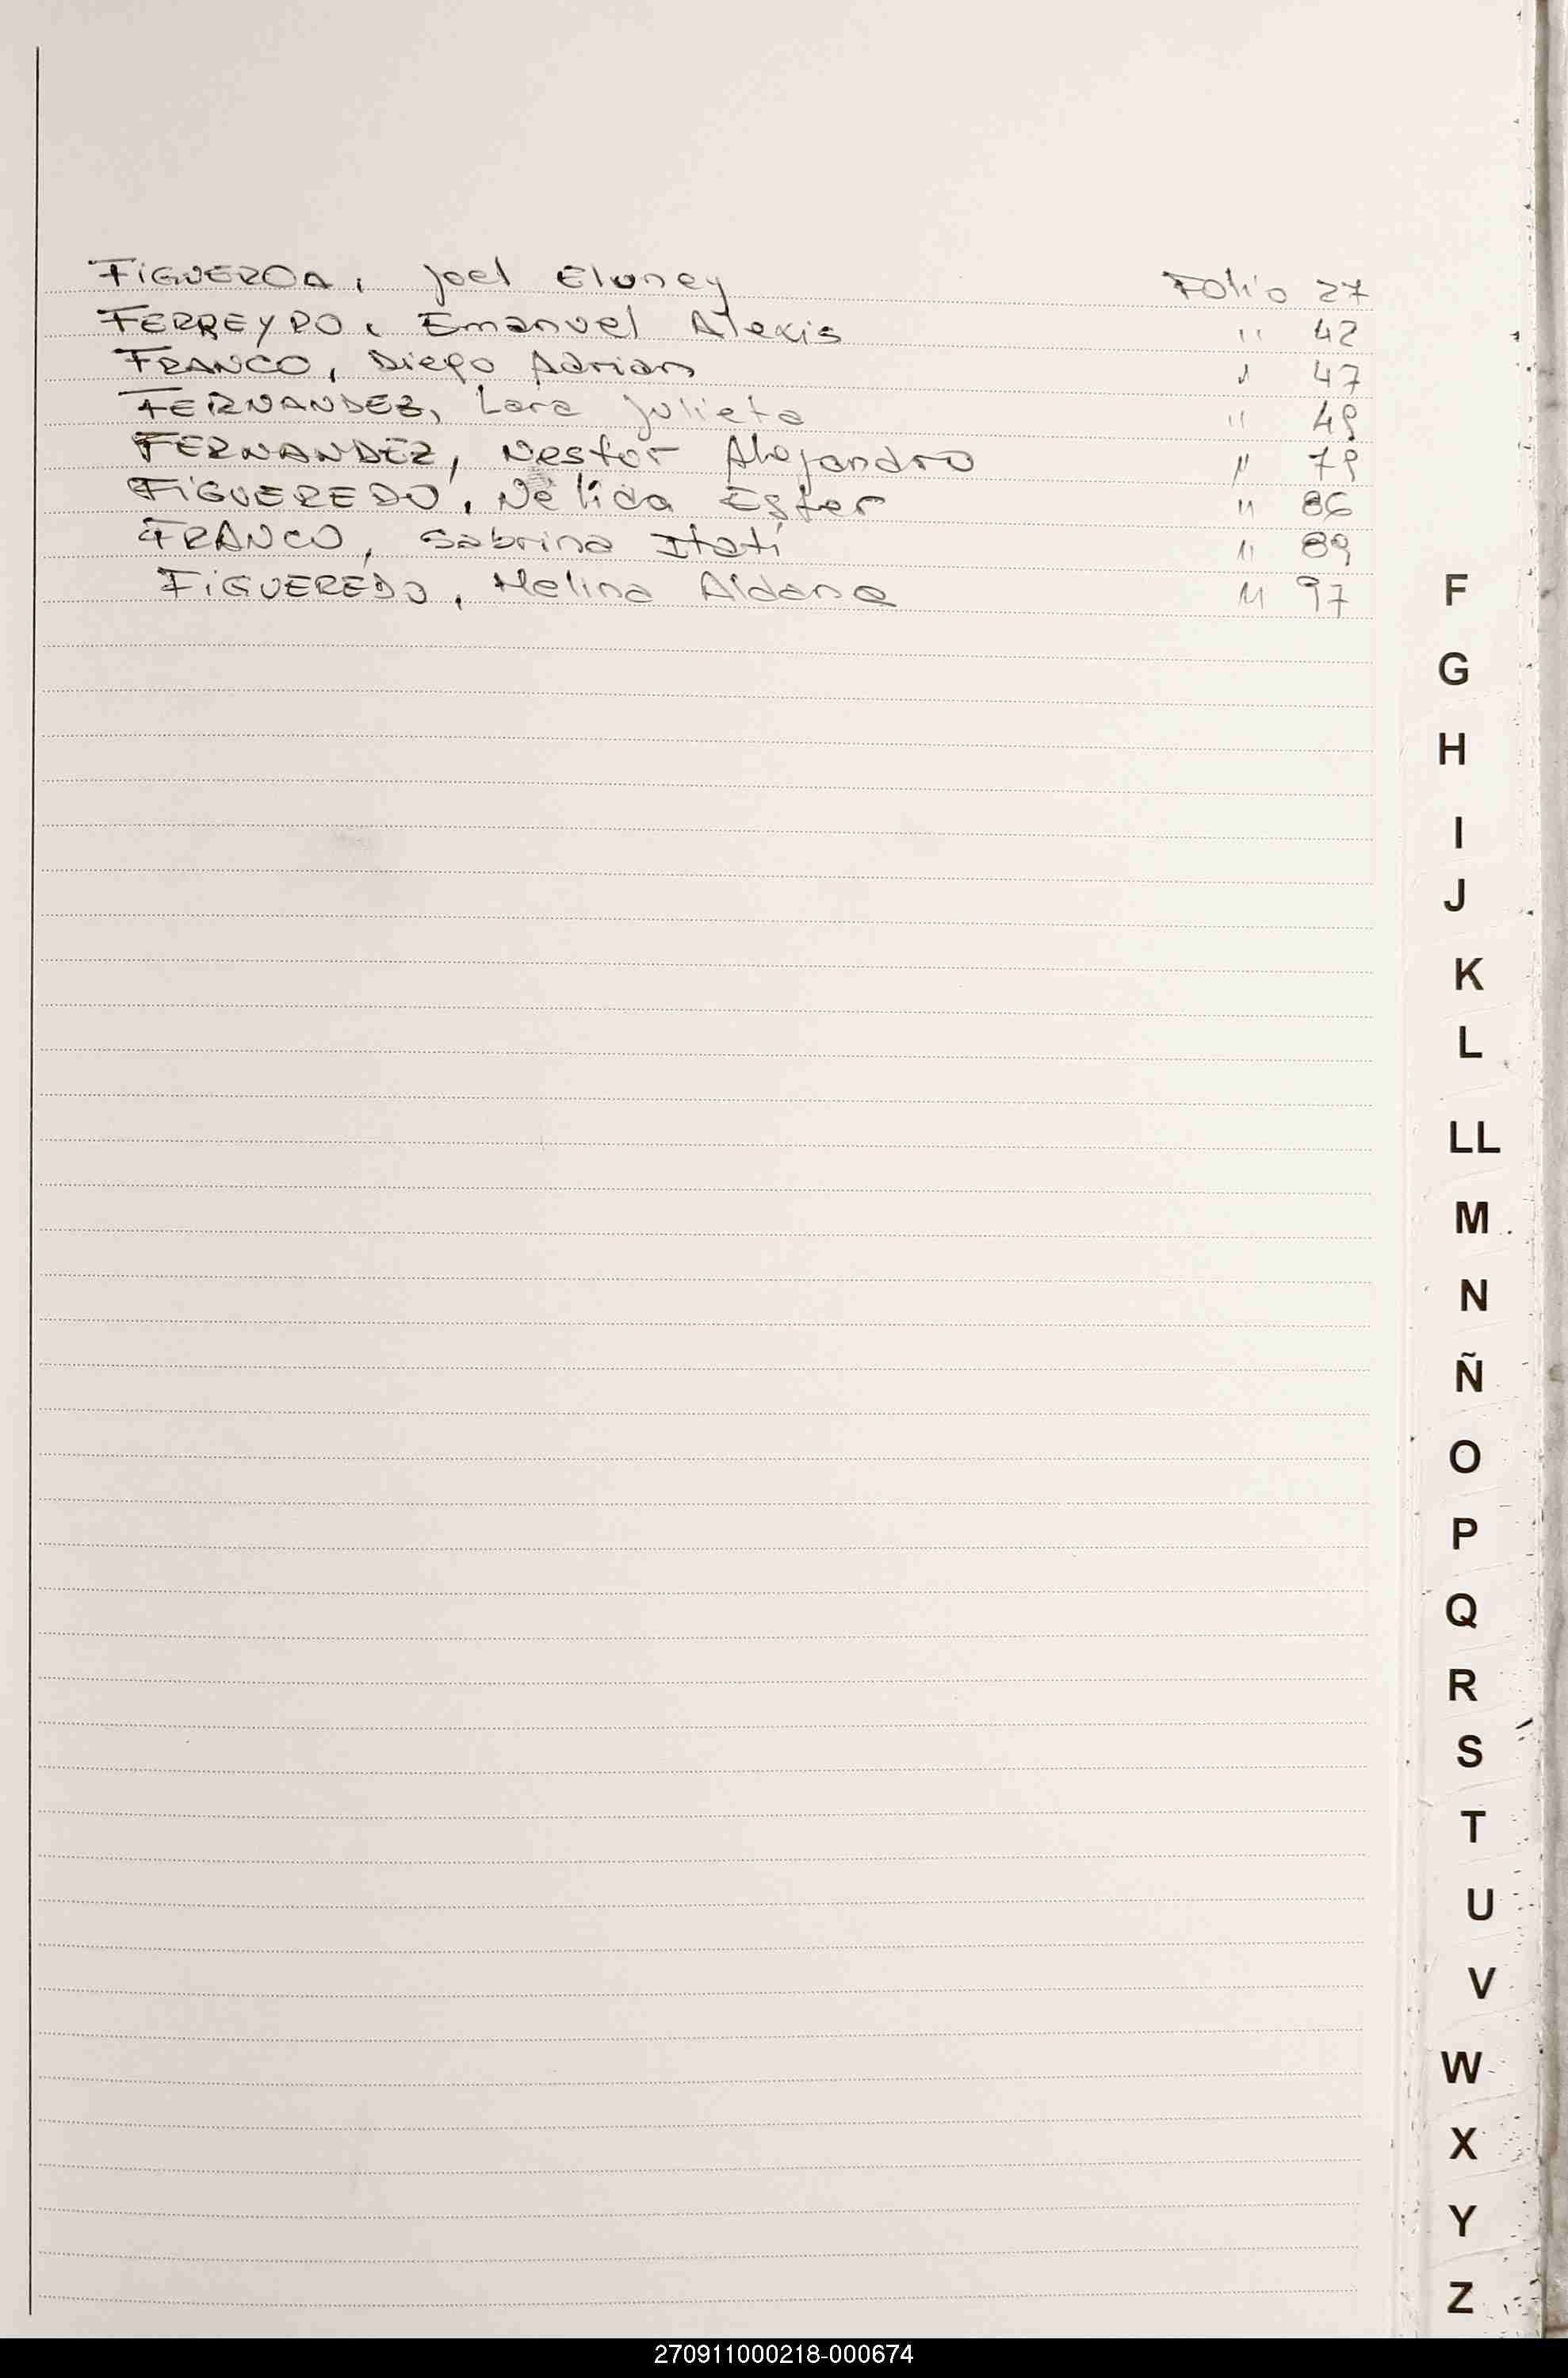 FIGUEROA, Joel Eluney Folio 27
FERREYRO, Emanuel Alexis " 42
FRANCO, Diego Adrian " 47
FERNANDEZ, Lara Julieta " 49
FERNANDEZ, Nestor Alejandro " 79
FIGUEREDO, Nélida Ester " 86
FRANCO, Sabrina Itatí " 89
FIGUEREDO, Melina Aldana " 97
F
G
H
I
J
K
L
LL
M
N
Ñ
O
P
Q
R
S
T
U
V
W
X
Y
Z
270911000218-000674